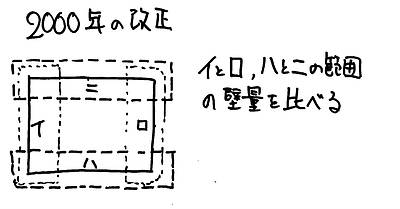 2000年の改正
イとロ,ハとニの範囲
の壁量を比べる
ニ
イ
ロ
ハ